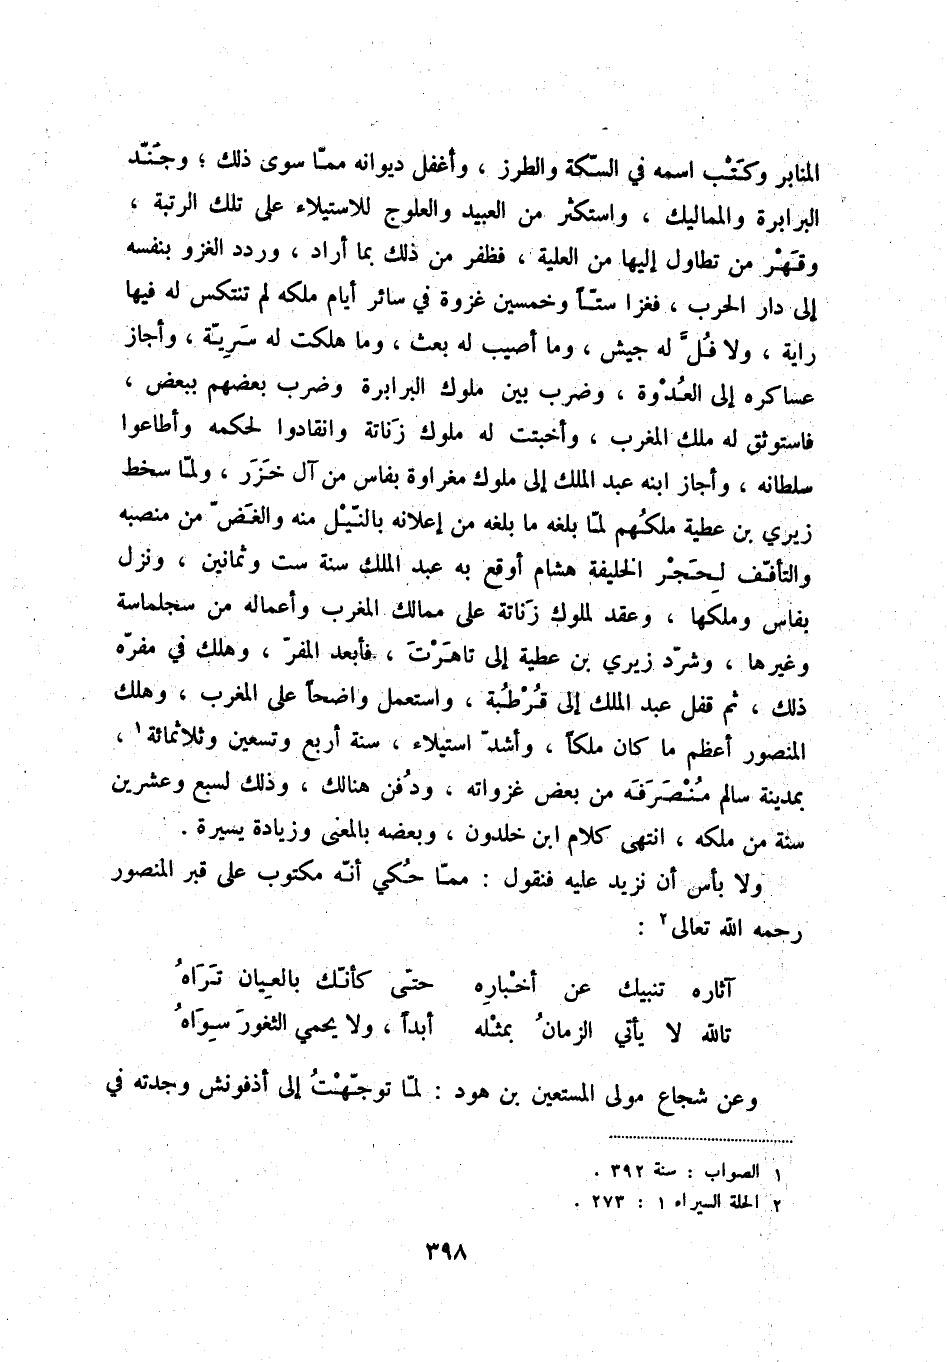 المنابر وكَتْب اسمه في السّكة والطرز ، وأغفل ديوانه ممّا سوى ذلك ؛ وجَنّد
البرابرة والمماليك ، واستكثر من العبيد والعلوج للاستيلاء على تلك الرتبة ،
وقَهْر من تطاول إليها من العلية ، فظفر من ذلك بما أراد ، وردد الغزو بنفسه
إلى دار الحرب ، فغزا ستّاً وخمسين غزوة في سائر أيام ملكه لم تنتكس له فيها
راية ، ولا فُلَّ له جيش ، وما أصيب له بعث ، وما هلكت له سَرِيّة ، وأجاز
عساكره إلى العُدْوة ، وضرب بين ملوك البرابرة وضرب بعضهم ببعض ،
فاستوثق له ملك المغرب ، وأخبتت له ملوك زَناتة وانقادوا لحكمه وأطاعوا
سلطانه ، وأجاز ابنه عبد الملك إلى ملوك مغراوة بفاس من آل خَزَر ، ولمّا سخط
زيري بن عطية ملكُهم لمّا بلغه ما بلغه من إعلانه بالنّيْل منه والغَضّ من منصبه
والتأفّف لِحَجْر الخليفة هشام أوقع به عبد الملك سنة ست وثمانين ، ونزل
بفاس وملكها ، وعقد لملوك زَناتة على ممالك المغرب وأعماله من سجلماسة
وغيرها ، وشرّد زيري بن عطية إلى تاهَرْتَ ، فأبعد المفرّ ، وهلك في مفرّه
ذلك ، ثم قفل عبد الملك إلى قُرْطُبة ، واستعمل واضحاً على المغرب ، وهلك
المنصور أعظم ما كان ملكاً ، وأشدّ استيلاء ، سنة أربع وتسعين وثلاثمائة١ ،
بمدينة سالم مُنْصَرَفَه من بعض غزواته ، ودُفن هنالك ، وذلك لسبع وعشرين
سنة من ملكه ، انتهى كلام ابن خلدون ، وبعضه بالمعنى وزيادة يسيرة .
ولا بأس أن نزيد عليه فنقول : ممّا حُكي أنّه مكتوب على قبر المنصور
رحمه الله تعالى٢ :
آثاره تنبيك عن أخْبارِه حتّى كأنّك بالعِيان تَرَاهُ
تالله لا يأتي الزمانُ بمثْله أبداً ، ولا يحمي الثغورَ سِوَاهُ
وعن شجاع مولى المستعين بن هود : لمّا توجّهْتُ إلى أذفونش وجدته في
١ الصواب : سنة ٣٩٢ .
٢ الحلة السيراء ١ : ٢٧٣ .
٣٩٨